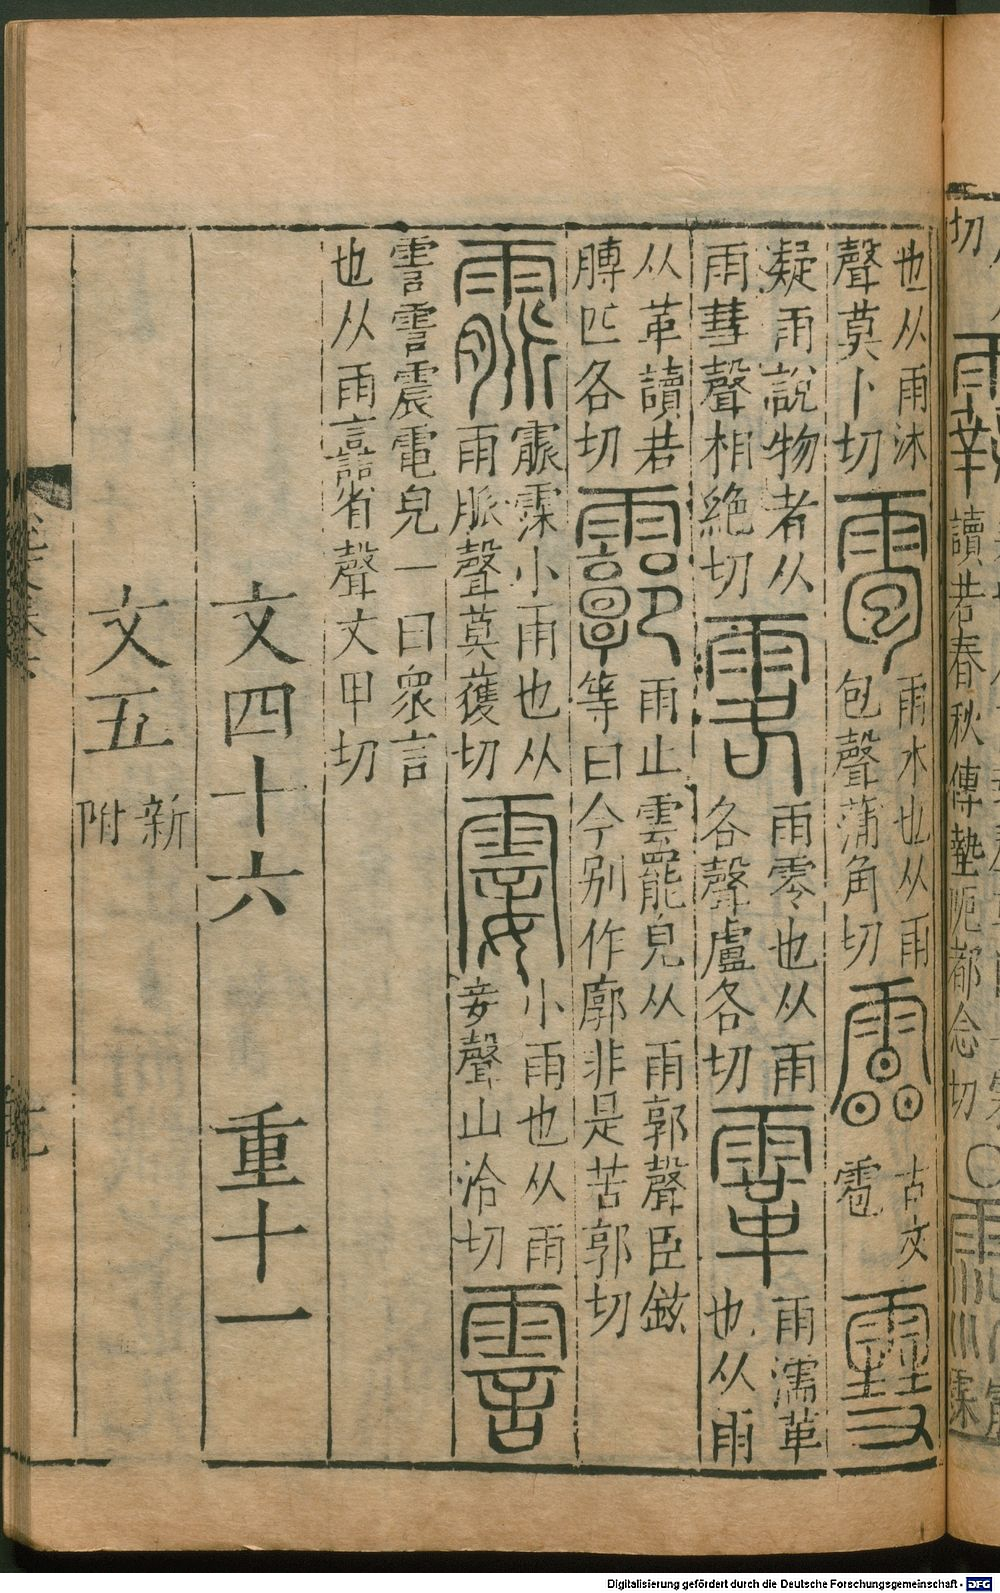 也从雨沐
聲莫卜切
雹
雨水也从雨
包聲蒲角切
古文
雹
䨮
凝雨說物者从
雨彗聲相絶切
䨩
雨零也从雨
各聲盧各切
䨣
雨濡革
也从雨
从革讀若
膊匹各切
霩
雨止雲罷皃从雨郭聲臣鉉
等曰今别作廓非是苦郭切
霢
霢霂小雨也从
雨脈聲莫獲切
霎
小雨也从雨
妾聲山洽切
霅
霅霅震電皃一曰衆言
也从雨言譶省聲丈甲切
文四十六 重十一
文五
新
附
切
讀若春秋傳墊阨都念切
Digitalisierung gefördert durch die Deutsche Forschungsgemeinschaft - DFG